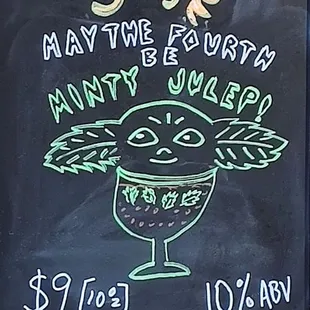 MAY THE FOURTH
BE
MINTY JULEP!
$9 [10oz] 10% ABV